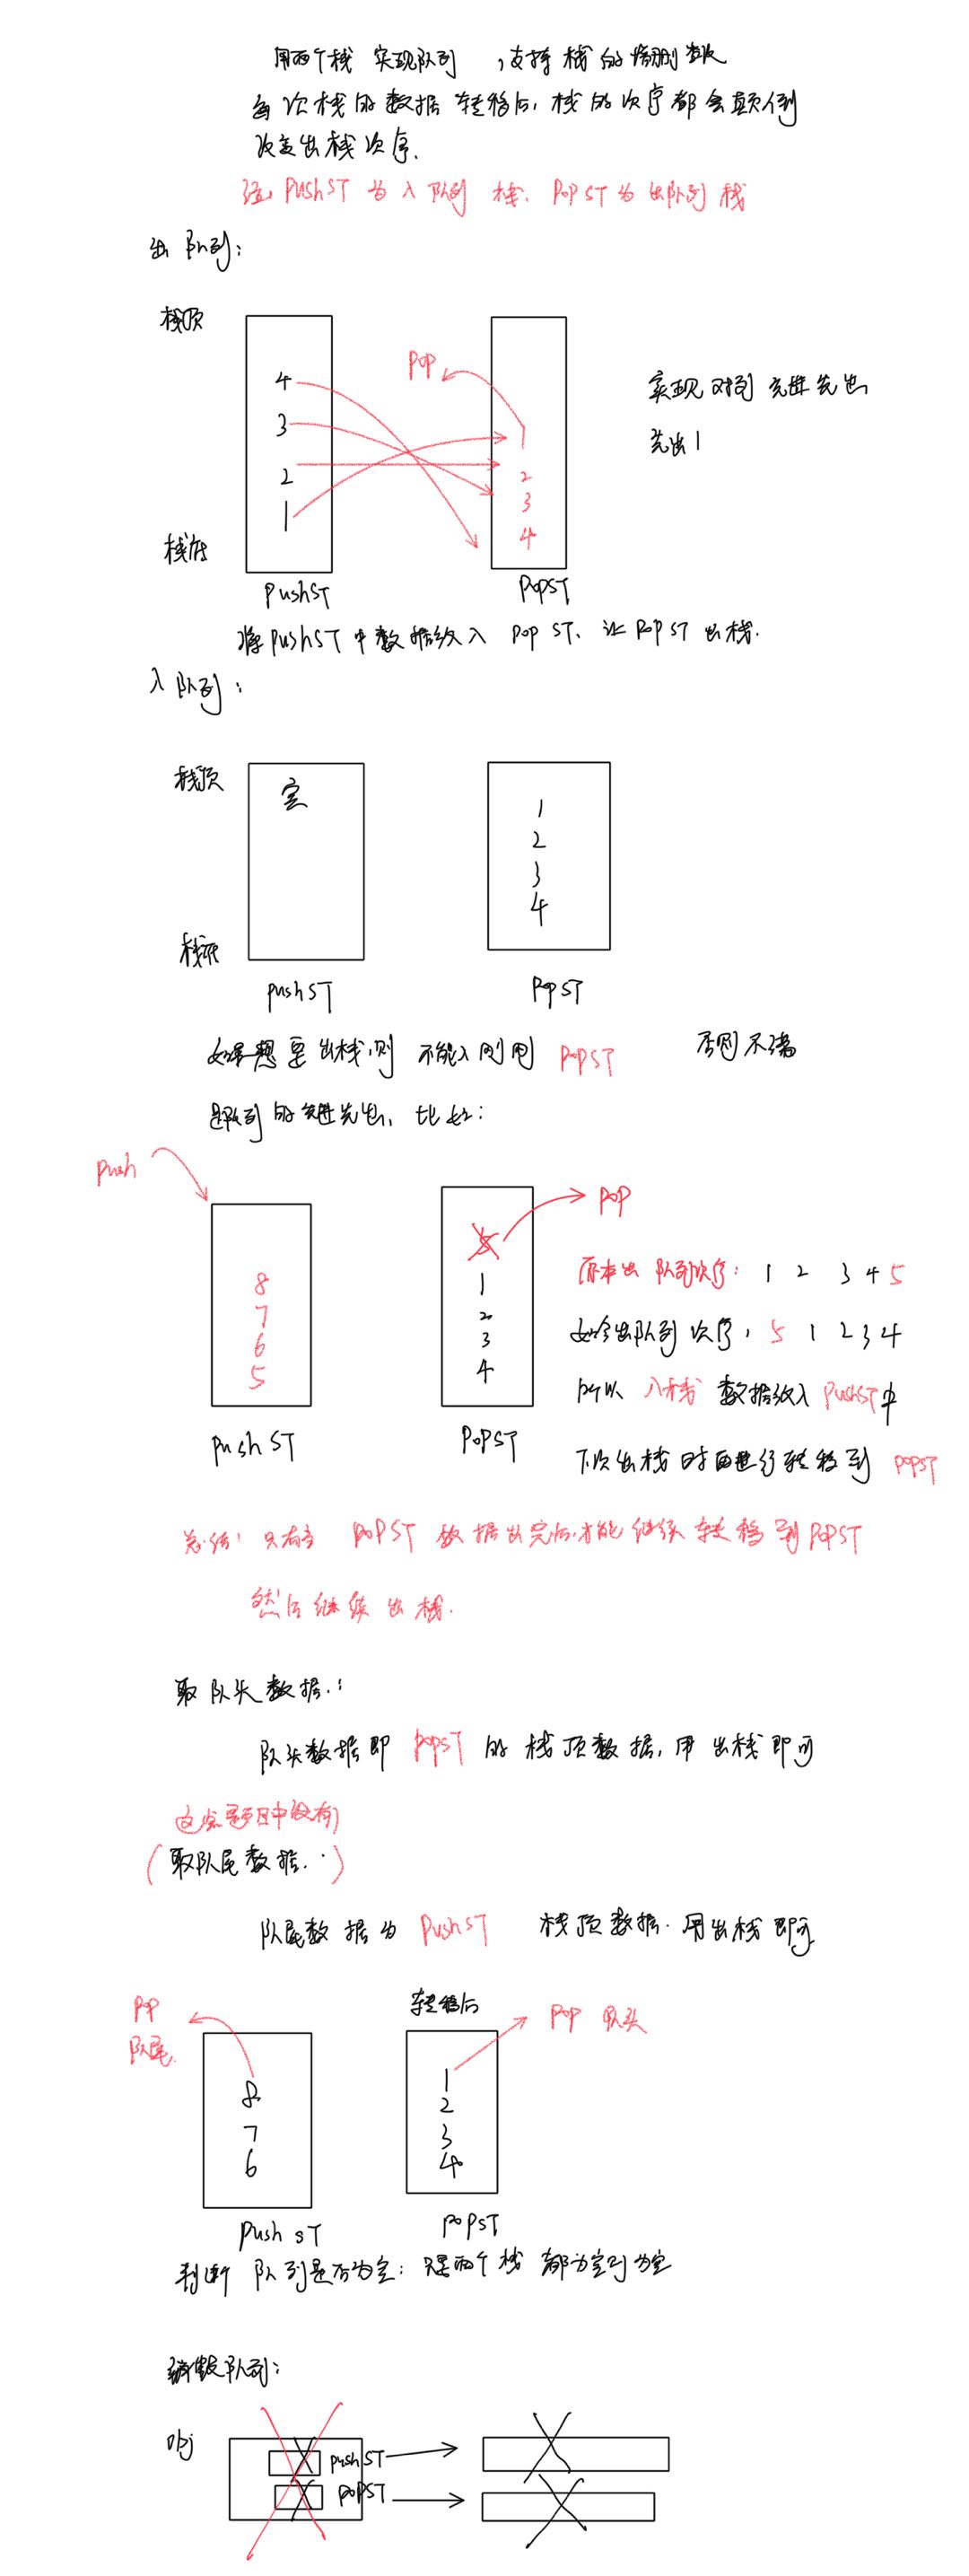 用两个栈 实现队列 ,支持 栈 的 增删
每次栈的数据 转移后, 栈的次序都会颠倒
改变出栈次序.
注: PushST 为 入队列 栈. PopST 为 出队列 栈
出队列:
栈顶
4
3
2
1
栈底
PushST
Pop
1
2
3
4
PopST
实现 对列 先进先出
先出 1
将 PushST 中数据放入 PopST. 让 PopST 出栈.
入队列:
栈顶
空
栈底
PushST
1
2
3
4
PopST
如果想要出栈,则 不能入 PopST 否则不满
足队列的先进先出, 比如:
Push
8
7
6
5
PushST
Pop
5
1
2
3
4
PopST
原本出队列次序: 1 2 3 4 5
如今出队列次序: 5 1 2 3 4
所以 入栈 数据放入 PushST 中
下次出栈时再进行转移到 PopST
总结: 只有当 PopST 数据出完后,才能继续转移到 PopST
然后继续出栈.
取队头数据:
队头数据即 PopST 的 栈顶数据, 用 出栈即可
这点题目中没有
(取队尾数据.)
队尾数据为 PushST 栈顶数据. 用出栈即可
Pop
队尾.
8
7
6
Push ST
转移后
Pop 队头
1
2
3
4
PopST
判断 队列是否为空: 只需两个栈 都为空则为空
销毁队列:
obj
PushST
PopST